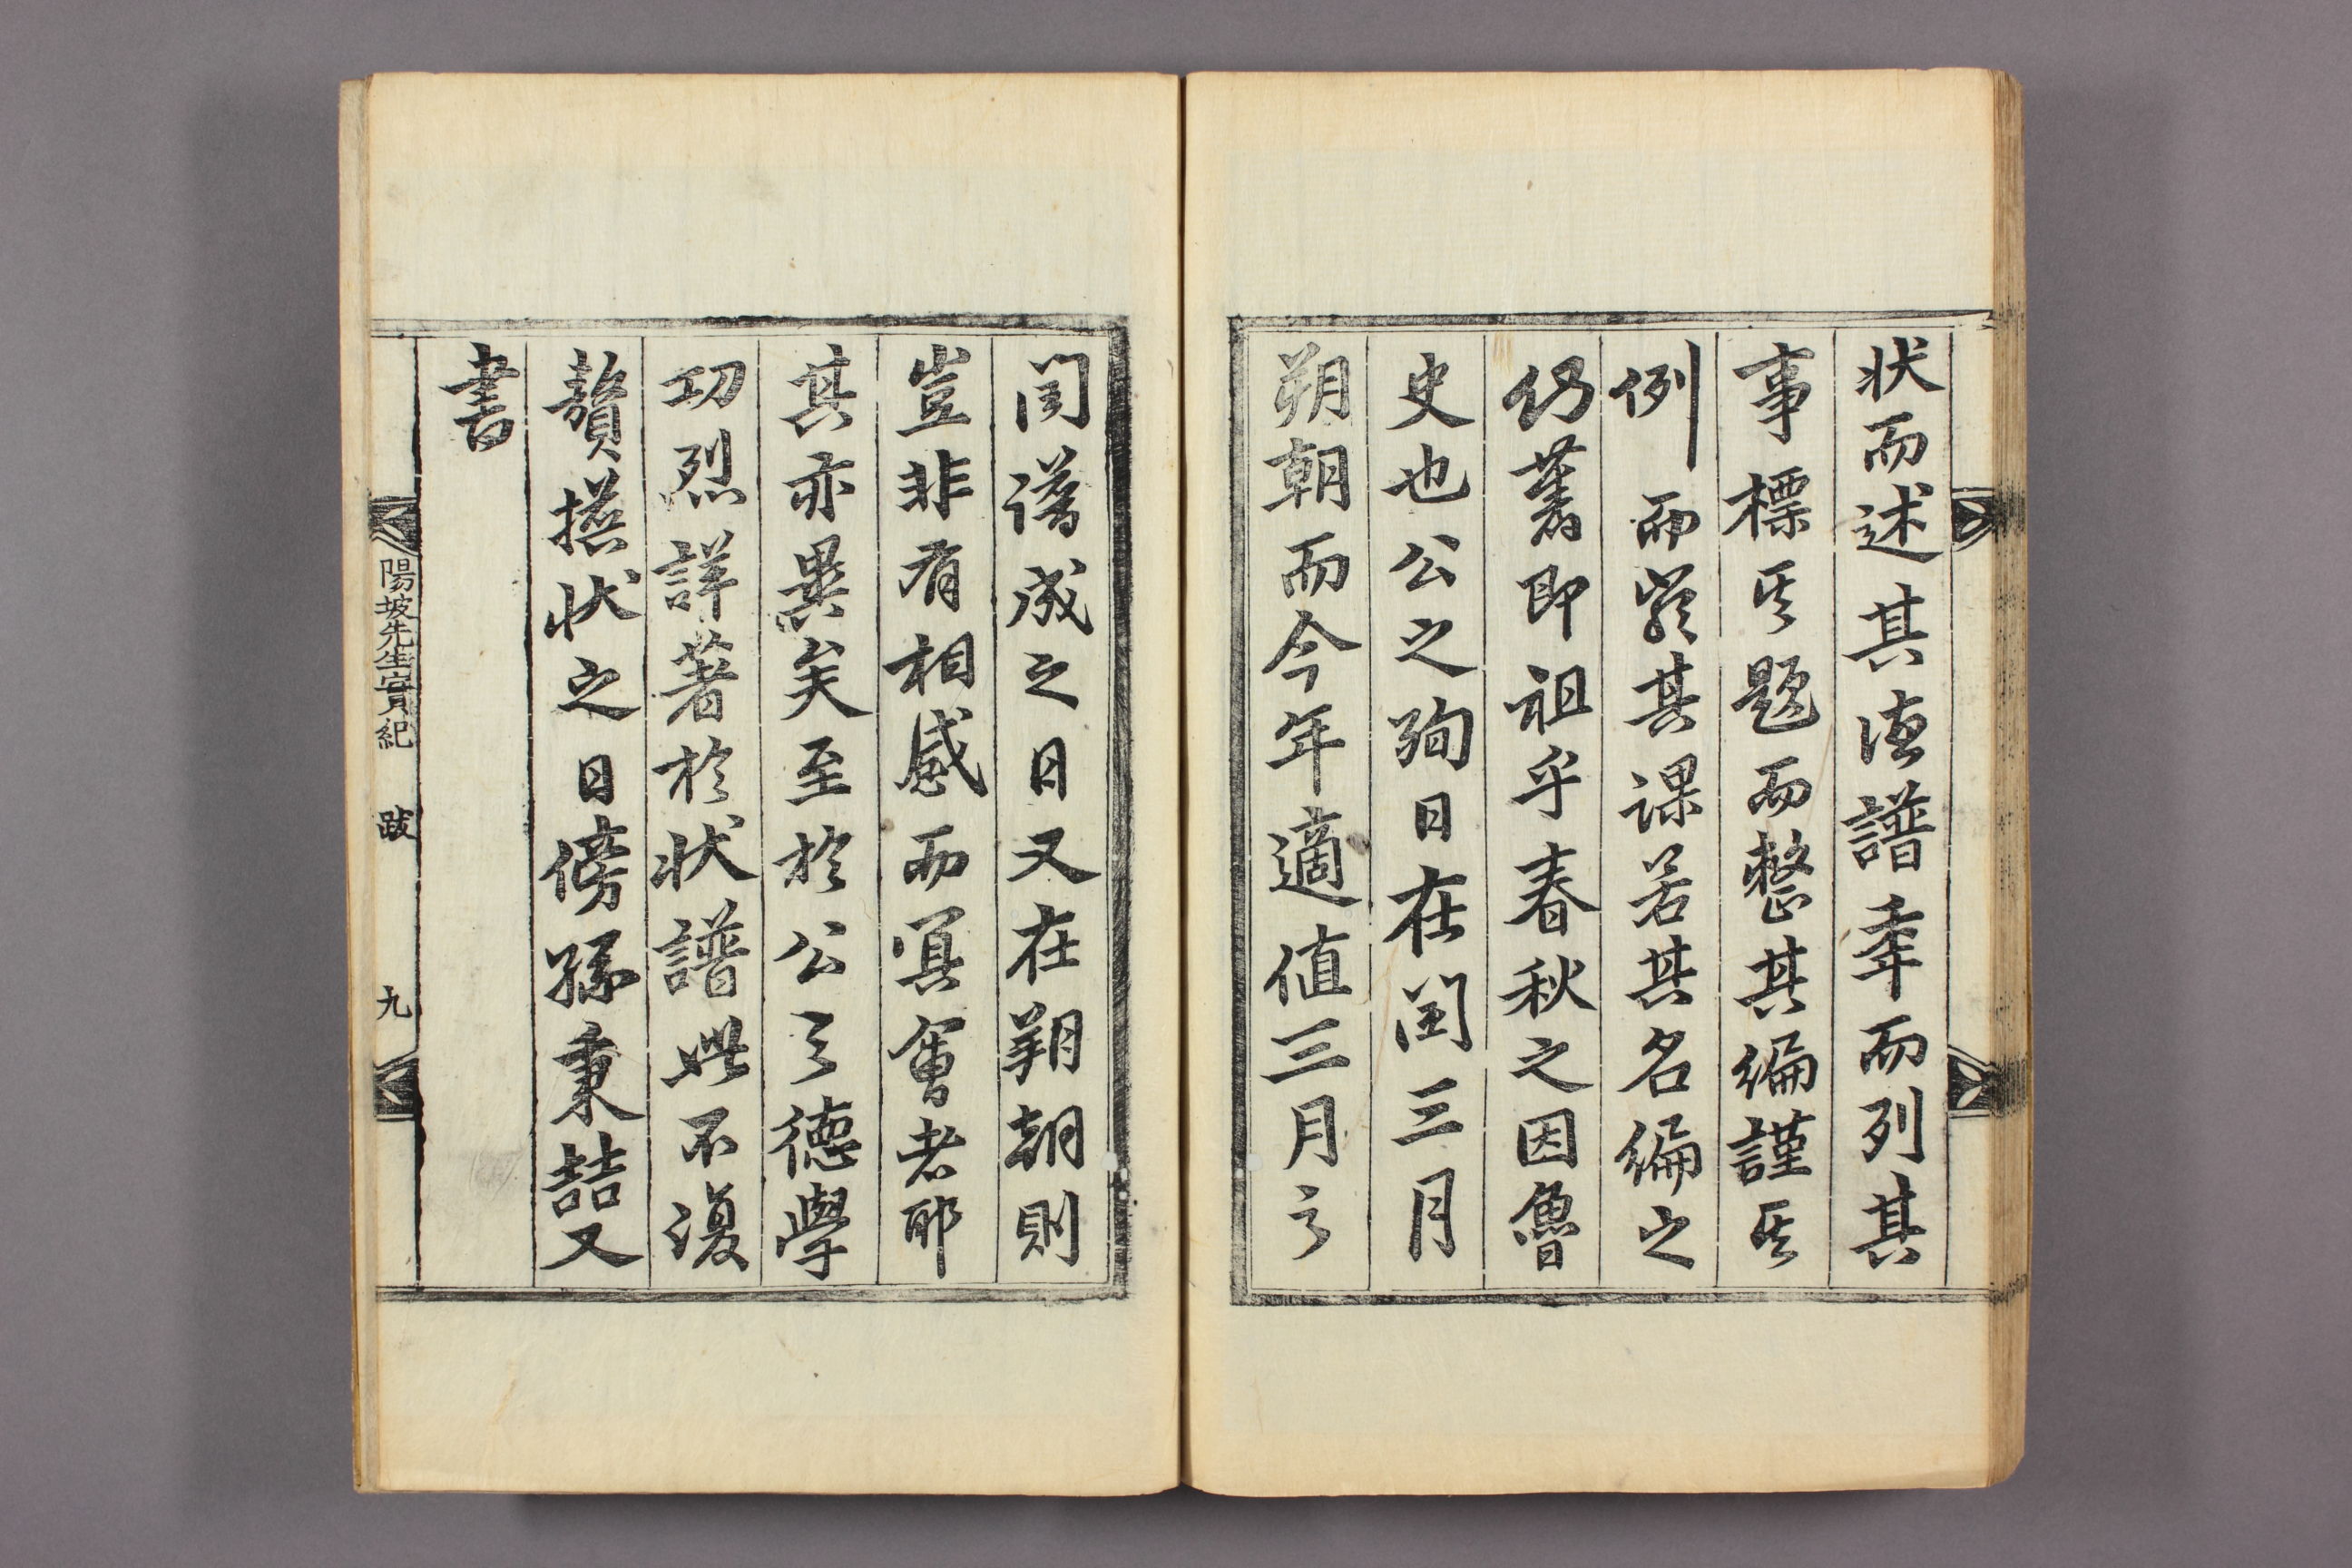 狀而述其德譜年而列其
事標其題而整其編謹其
例而嚴其課若其名編之
仍舊即祖乎春秋之因魯
史也公之殉日在閏三月
朔朝而今年適值三月之
閏譜成之日又在朔朝則
豈非有相感而冥會者耶
其亦異矣至於公之德學
功烈詳著於狀譜此不復
贅撰狀之日傍孫秉喆又
書
陽坡先生實紀 跋 九